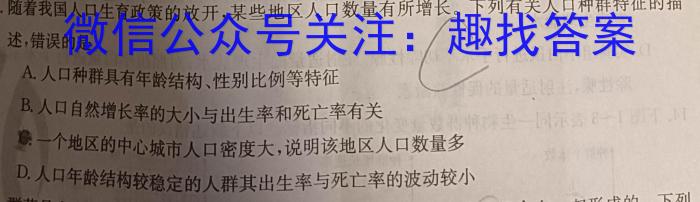 .随着我国人口生育政策的放开,某些地区人口数量有所增长。下列有关人口种群特征的描
微信公众号关注：趣找答案
述,错误的是
A.人口种群具有年龄结构、性别比例等特征
B.人口自然增长率的大小与出生率和死亡率有关
.一个地区的中心城市人口密度大,说明该地区人口数量多
D.人口年龄结构较稳定的人群其出生率与死亡率的波动较小
下列